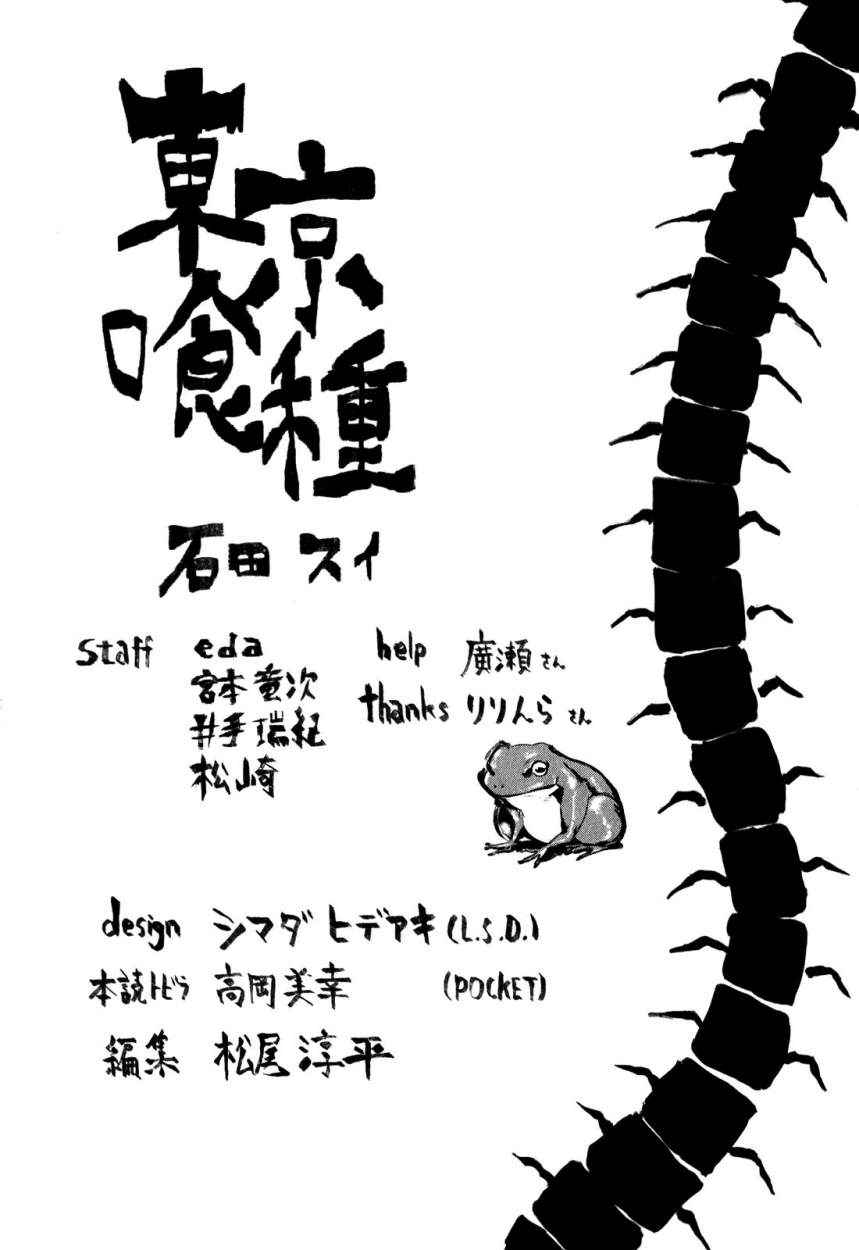 東京
喰種
石田スイ
staff eda
宮本竜次
井手瑞紀
松崎
help 廣瀬さん
thanks りりんらさん
design シマダヒデアキ (L.S.D.)
本誌トビラ 高岡美幸 (POCKET)
編集 松尾淳平